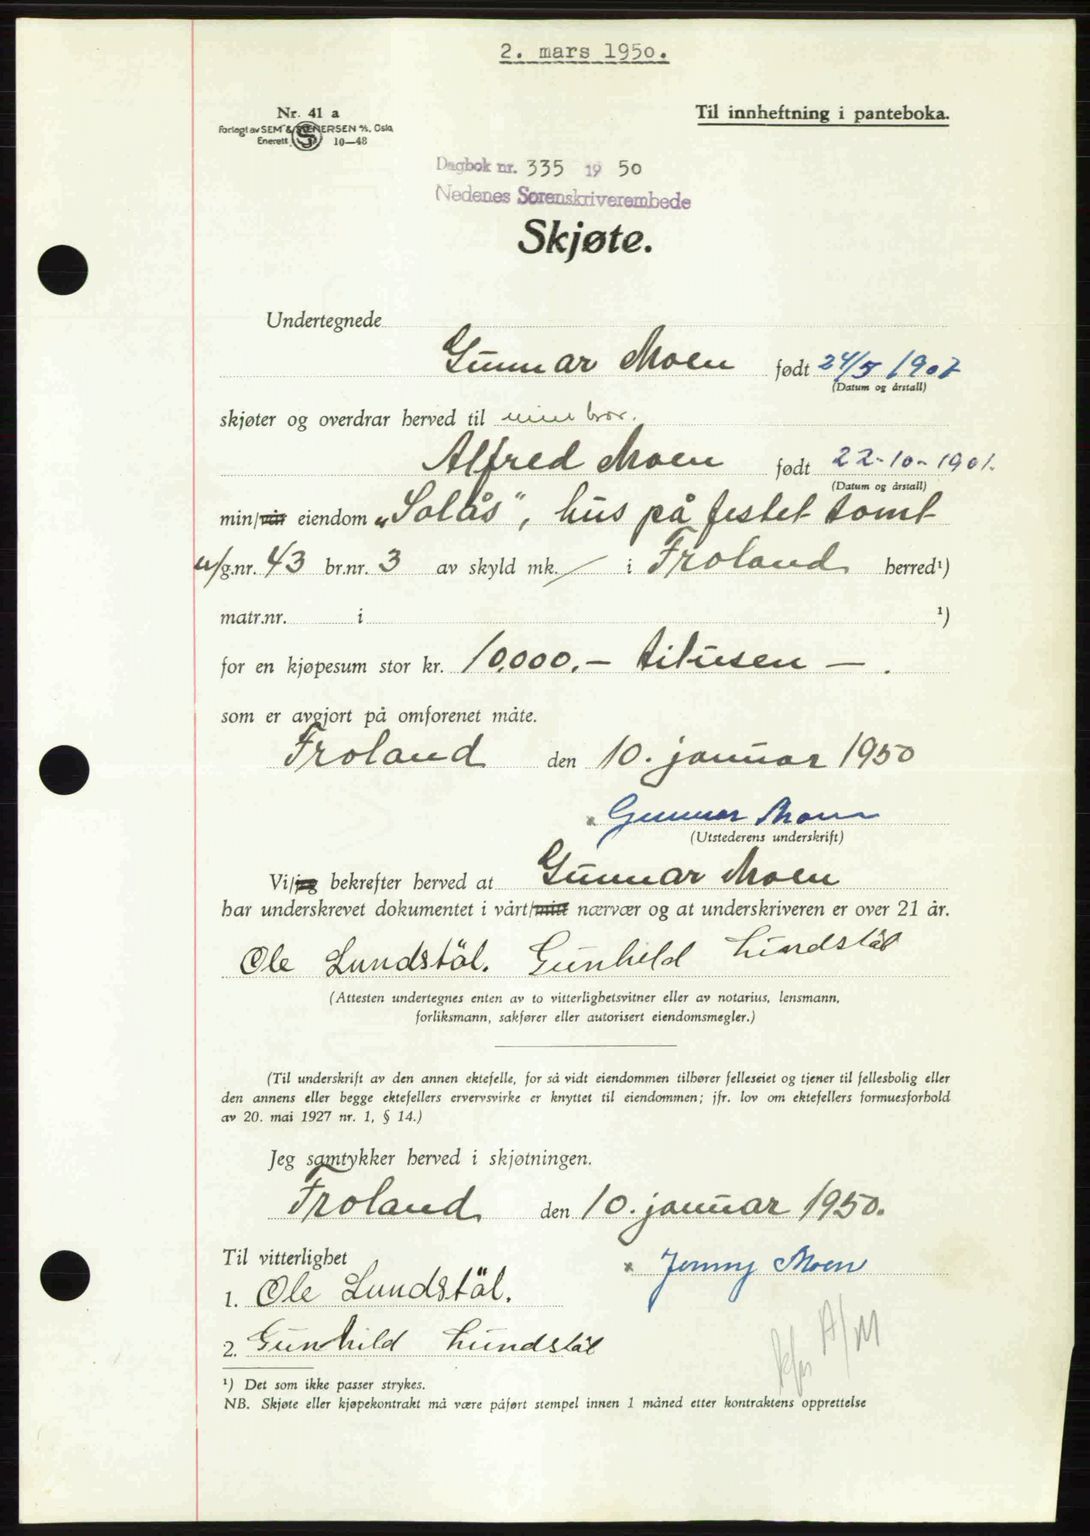 2. mars 1950.
Nr. 41 a
Forlagt av SEM & STENERSEN A/S, Oslo
Enerett 10—48
Til innheftning i panteboka.
Dagbok nr. 335 1950
Nedenes Sorenskriverembede
Skjøte.
Undertegnede
Gunnar Moen født 24/5 1907
(Datum og årstall)
skjøter og overdrar herved til min bror.
Alfred Moen født 22-10-1901.
(Datum og årstall)
min/vår eiendom „Solås", hus på festet tomt
u/g.nr. 43 br.nr. 3 av skyld mk. / i Froland herred¹)
matr.nr. i ¹)
for en kjøpesum stor kr. 10.000.- titusen — .
som er avgjort på omforenet måte.
Froland den 10. januar 1950
x Gunnar Moen
(Utstederens underskrift)
Vi/jeg bekrefter herved at Gunnar Moen
har underskrevet dokumentet i vårt/mitt nærvær og at underskriveren er over 21 år.
Ole Lundstøl. Gunhild Lundstøl
(Attesten undertegnes enten av to vitterlighetsvitner eller av notarius, lensmann,
forliksmann, sakfører eller autorisert eiendomsmegler.)
(Til underskrift av den annen ektefelle, for så vidt eiendommen tilhører felleseiet og tjener til fellesbolig eller
den annens eller begge ektefellers ervervsvirke er knyttet til eiendommen; jfr. lov om ektefellers formuesforhold
av 20. mai 1927 nr. 1, § 14.)
Jeg samtykker herved i skjøtningen.
Froland den 10. januar 1950.
Til vitterlighet
x Jenny Moen
1. Ole Lundstøl.
2. Gunhild Lundstøl
A/M
¹) Det som ikke passer strykes.
NB. Skjøte eller kjøpekontrakt må være påført stempel innen 1 måned etter kontraktens opprettelse